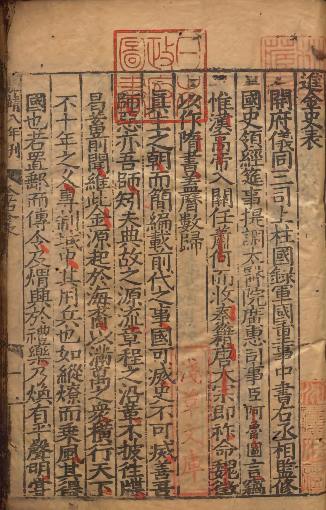 進金史表
開府儀同三司上柱國錄軍國重事中書右丞相監修
國史領經筵事提調太醫院廣惠司事臣阿魯圖言竊
惟漢高帝入關任蕭何而收秦籍唐太宗即祚命魏徵
以作隋書蓋曆數歸
真主之朝而簡編載前代之事國可滅史不可滅善吾
師惡亦吾師矧夫典故之源流章程之沿革不披往牒
曷蓄前聞維此金源起於海裔以滿萬之衆橫行天下
不十年之久專制域中其用兵也如縱燎而乘風其得
國也若置郵而傳令及煟興於禮樂乃煥有乎聲明嘗